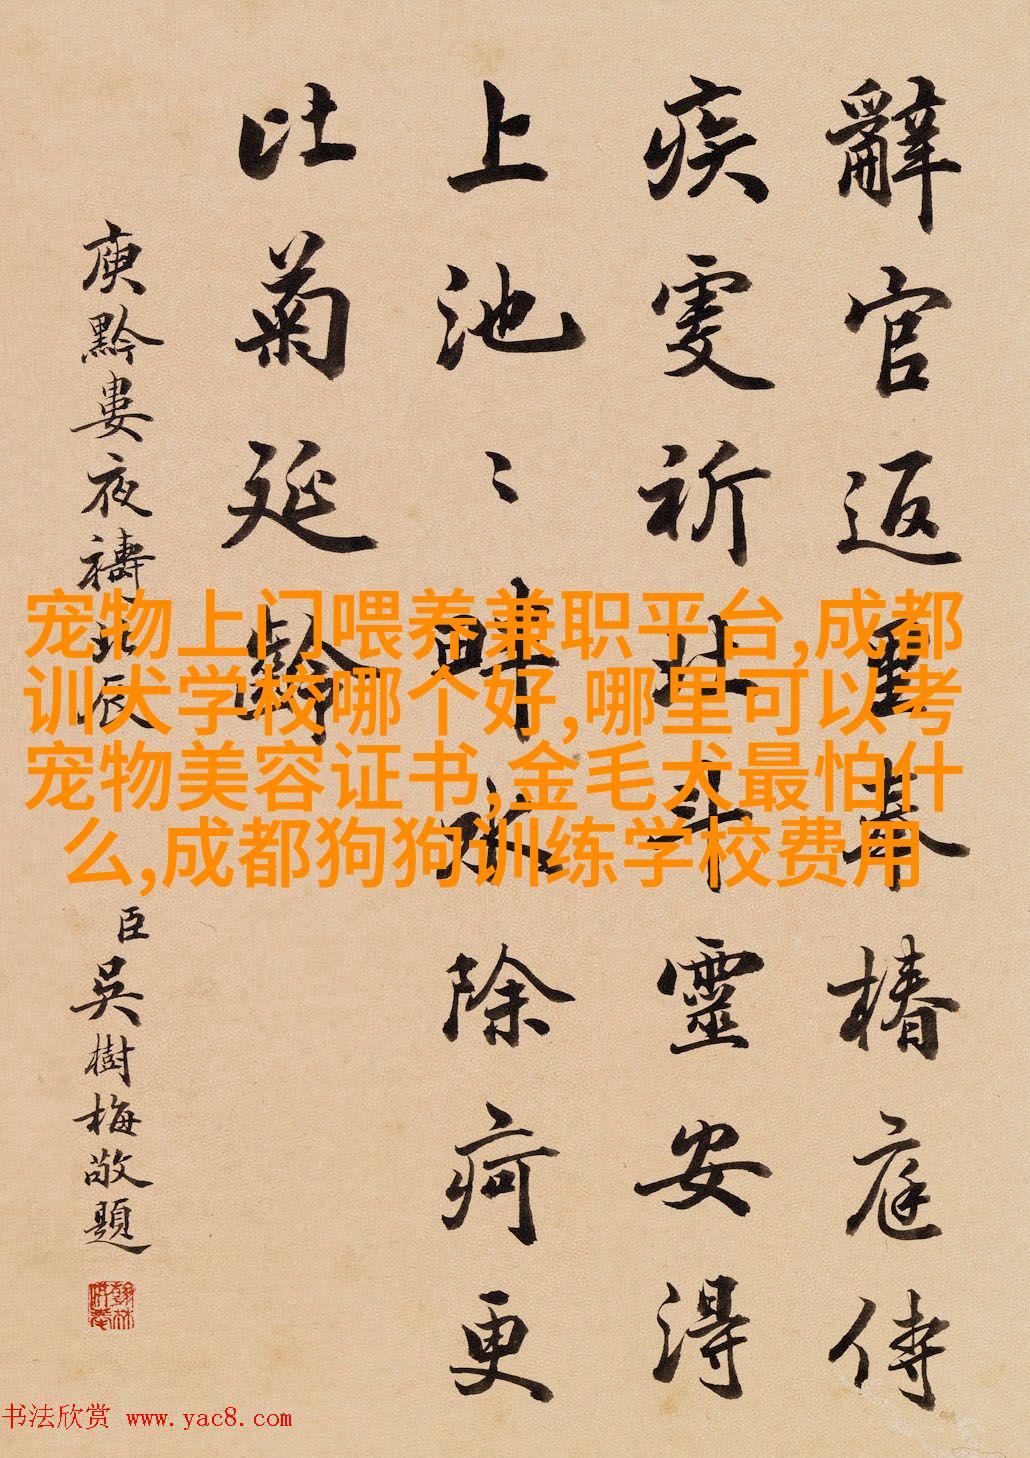 辭官返里奉椿庭侍
疾虔祈北斗靈安得
上池〻畔水除疴更
比菊延齡
庾黔婁夜禱北辰
臣吳樹梅敬題
翰林供奉
宠物上门喂养兼职平台,成都
训犬学校哪个好,哪里可以考
宠物美容证书,金毛犬最怕什
么,成都狗狗训练学校费用
书法欣赏 www.yac8.com